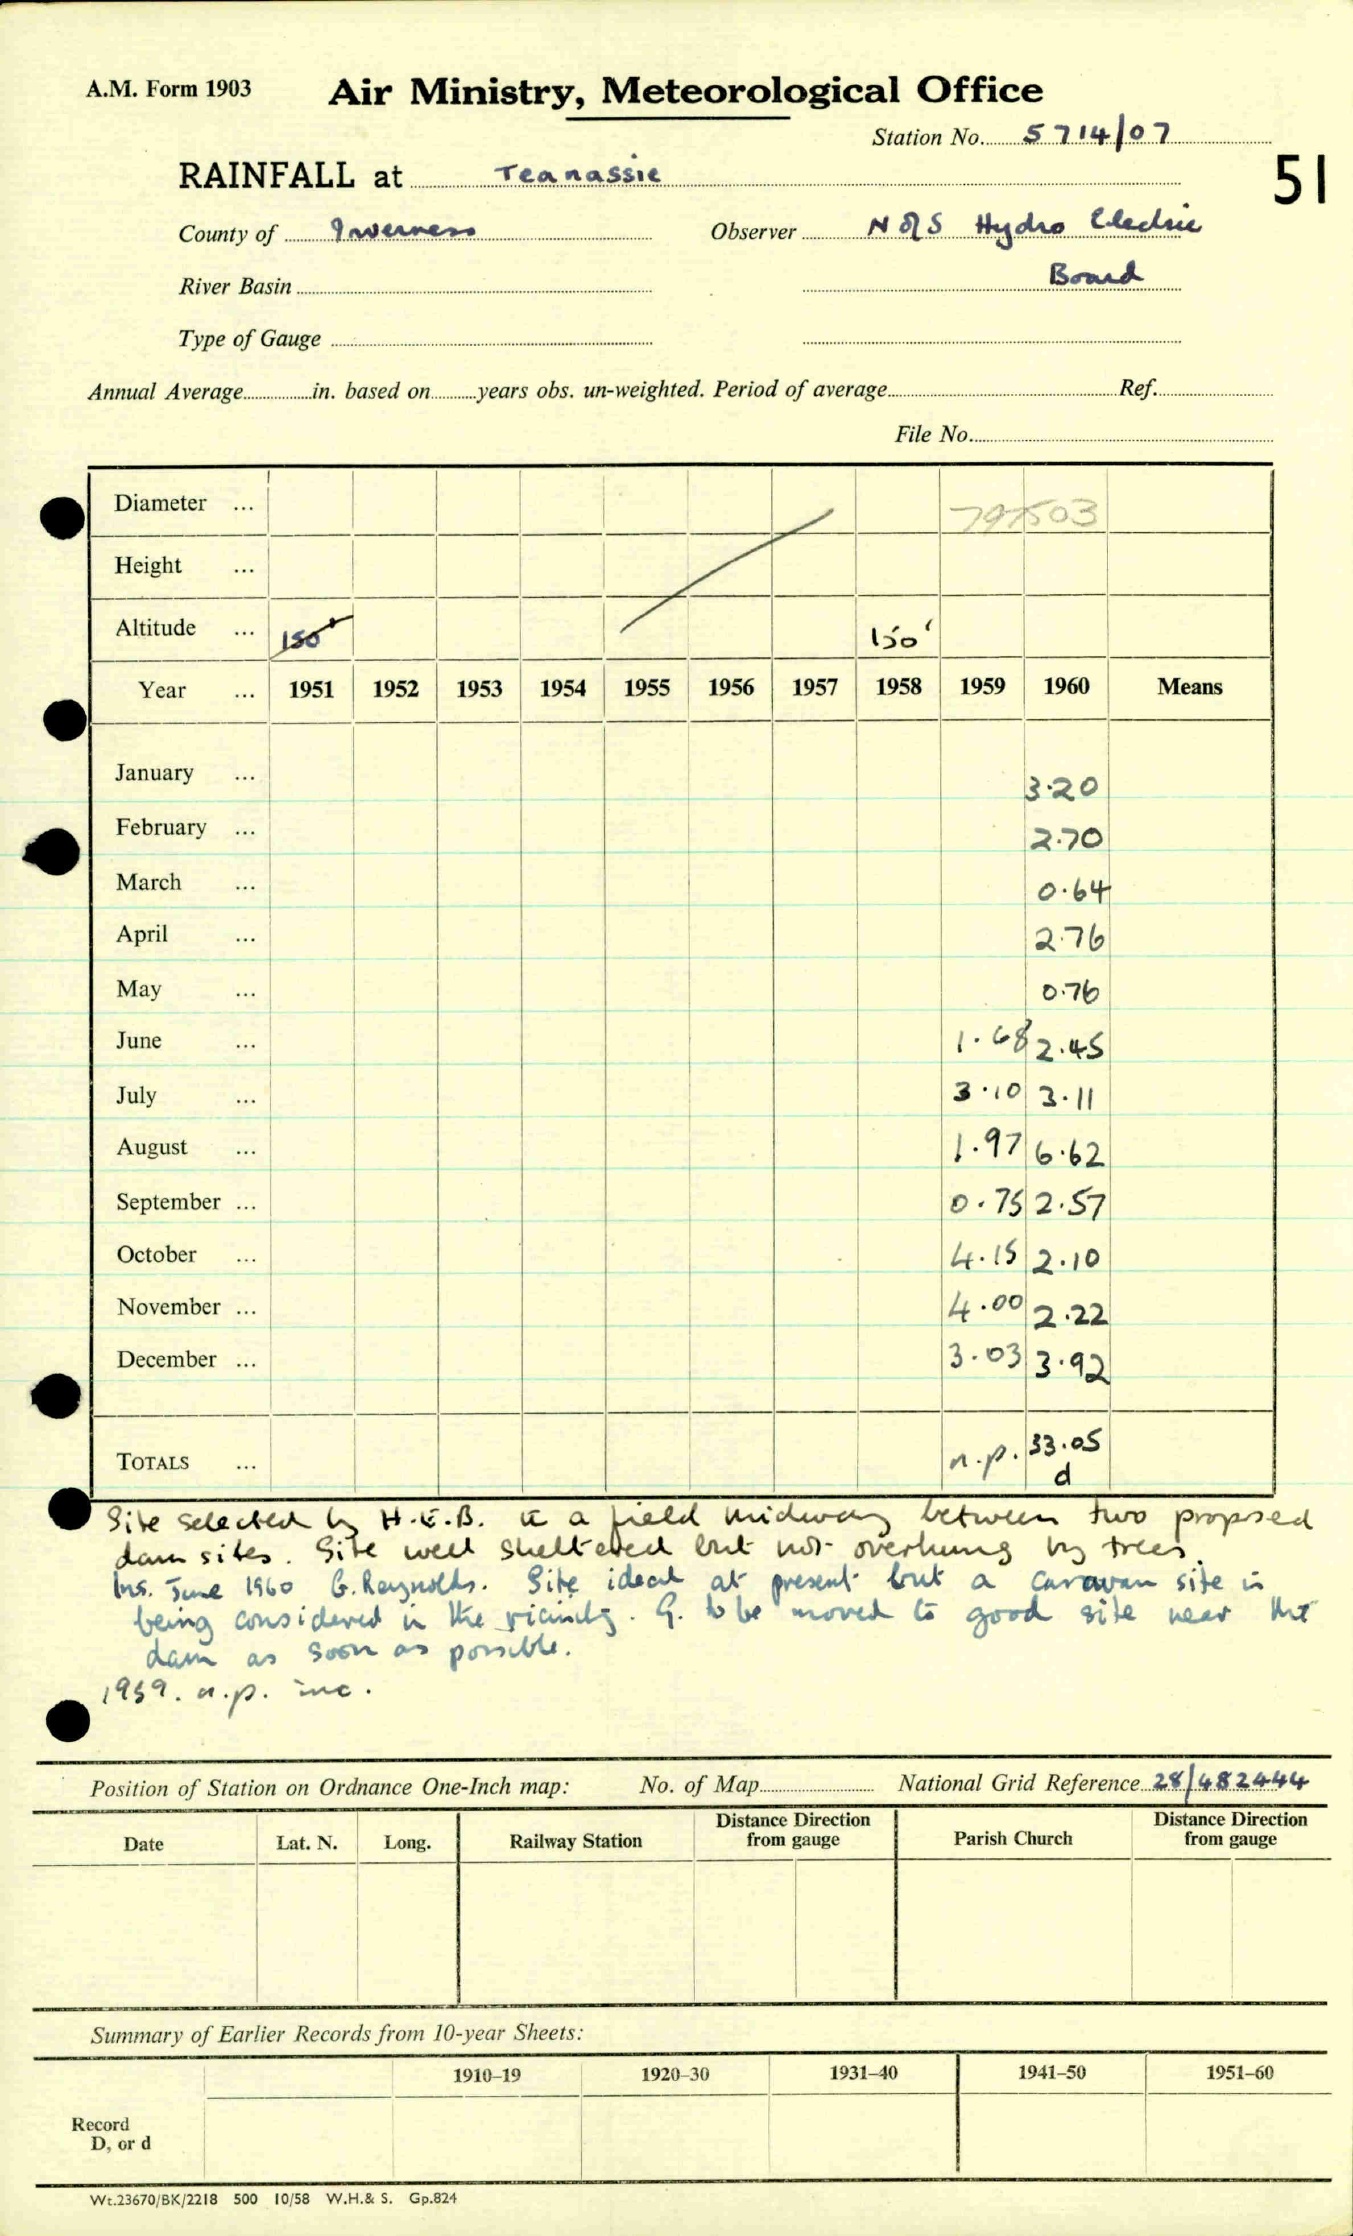 A.M. Form 1903
Air Ministry, Meteorological Office
Station No. 5714/07
51
RAINFALL at Teanassie
County of Inverness Observer N of S Hydro Electric
River Basin Board
Type of Gauge
Annual Average in. based on years obs. un-weighted. Period of average Ref.
File No.
Diameter ... 797503
Height ...
Altitude ... 150' 150'
Year ... 1951 1952 1953 1954 1955 1956 1957 1958 1959 1960 Means
January ... 3.20
February ... 2.70
March ... 0.64
April ... 2.76
May ... 0.76
June ... 1.68 2.45
July ... 3.10 3.11
August ... 1.97 6.62
September ... 0.75 2.57
October ... 4.15 2.10
November ... 4.00 2.22
December ... 3.03 3.92
TOTALS ... n.p. 33.05
d
Site selected by H.E.B. in a field midway between two proposed
dam sites. Site well sheltered but not overhung by trees.
Ins. June 1960 G. Reynolds. Site ideal at present but a caravan site is
being considered in the vicinity. G. to be moved to good site near the
dam as soon as possible.
1959. n.p. inc.
Position of Station on Ordnance One-Inch map: No. of Map National Grid Reference 28/482444
Date Lat. N. Long. Railway Station Distance Direction from gauge Parish Church Distance Direction from gauge
Summary of Earlier Records from 10-year Sheets:
1910–19 1920–30 1931–40 1941–50 1951–60
Record
D, or d
Wt.23670/BK/2218 500 10/58 W.H.& S. Gp.824